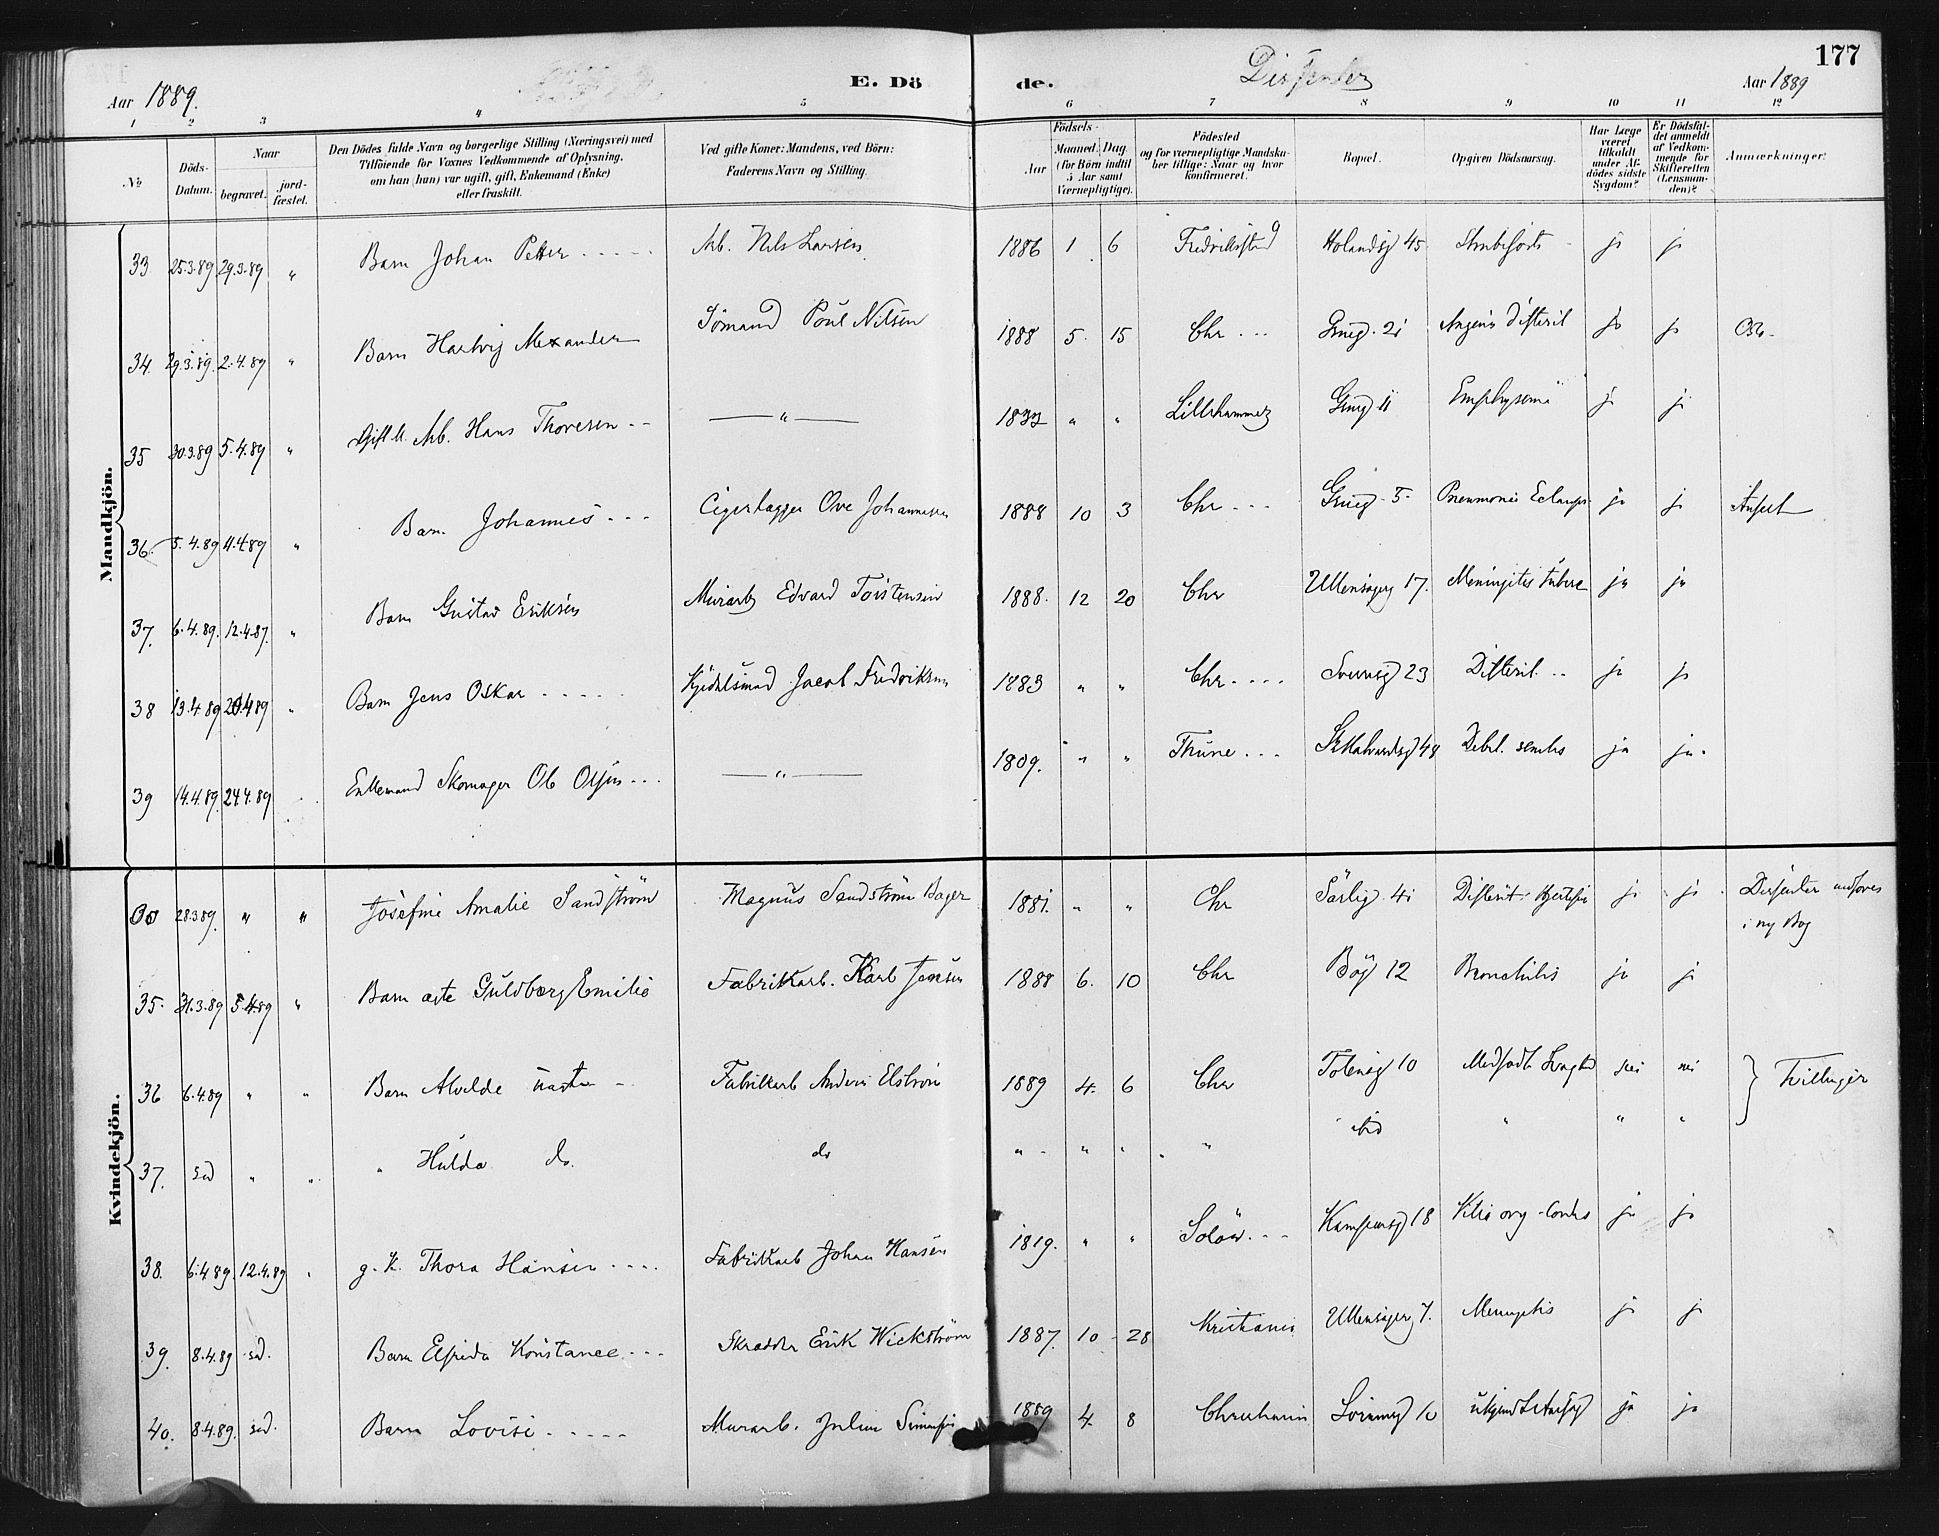 177
Aar 1889.
E. Dö
de.
Dissenter
Aar 1889
1 2 3 4 5 6 7 8 9 10 11 12
No
Döds-Datum.
Naar
begravet.
jord-fæstet.
Den Dödes fulde Navn og borgerlige Stilling (Næringsvei) med
Tilföiende for Voxnes Vedkommende af Oplysning,
om han (hun) var ugift, gift, Enkemand (Enke)
eller fraskilt.
Ved gifte Koner: Mandens, ved Börn:
Faderens Navn og Stilling.
Födsels-
Aar
Maaned. Dag.
(for Börn indtil
5 Aar samt
Værnepligtige).
Födested
og for værnepligtige Mandska-
ber tillige: Naar og hvor
konfirmeret.
Bopæl.
Opgiven Dödsaarsag.
Har Læge
været
tilkaldt
under Af-
dödes sidste
Sygdom?
Er Dödsfal-
det anmeldt
af Vedkom-
mende for
Skifteretten
(Lensman-
den)?
Anmærkninger.
Mandkjön.
33 25.3.89 29.3.89 " Barn Johan Petter Arb. Nils Larsen 1886 1 6 Fredrikstad 45 ja ja
34. 29.3.89. 2.4.89 " Barn Hartvig Alexander Sømand Poul Nilsen 1888 5. 15 Chr Grueg. 21 Angina Difterit ja ja Oslo
35 30.3.89 5.4.89 " Gift M. Arb. Hans Thoresen — " — " " Lillehammer Grueg 11 Emphysema ja ja
36. 5.4.89 11.4.89 " Barn Johannes Ove Johannesen 1888 10 3 Chr Grueg 5 Pneumoni Eclamps ja ja
37. 6.4.89. 12.4.89. " Barn Gustav Eriksen Murarb Edvard Torstensen 1888. 12 20 Chr Ullensagerg 17. Meningitis tuberc ja ja
38 13.4.89 20.4.89 " Barn Jens Oskar Kjedelsmed Jacob Fredriksen 1883 " " Chr 23 Difterit ja ja
39 14.4.89. 24.4.89 Enkemand Skomager Ole Olsen — " — 1809. " " Thune St Halvardsgd 48 Debil. senilis ja ja
Kvindekjön.
00 28.3.89. " " Josefine Amalie Sandström Magnus Sandström Bager 1881. " " Chr Sørlig. 41 Difterit ja ja Dissenter anføres
i ny Bog
35. 31.3.89 5.4.89 " Barn ægte Guldborg Emilie Fabrikarb. Karl Jensen 1888 6. 10 Chr Bøg 12 Bronchitis ja ja
36 6.4.89 " " Barn Alvilde Fabrikarb Anders Elström 1889 4. 6 Chr Tøieng 10 Medfødt Svaghed nei nei } Tvillinger
37. sd " " " Hulda do. do " " " " ibd " " "
38. 6.4.89. 12.4.89 g. K. Thora Hansen Fabrikarb Johan Hansen 1819. " " Solør Kampensgd 18 Vitie org. cordis ja ja
39. 8.4.89 sd. Barn Elfrida Konstance Skrædder Erik Wickström 1887. 10 28 Kristiania Ullensagerg 7. Meningitis ja ja
40. 8.4.89. sd. Barn Lovise Murarb. Julius Simensen 1889 4. 8 Christiania 10 ukjendt Aarsag ja ja